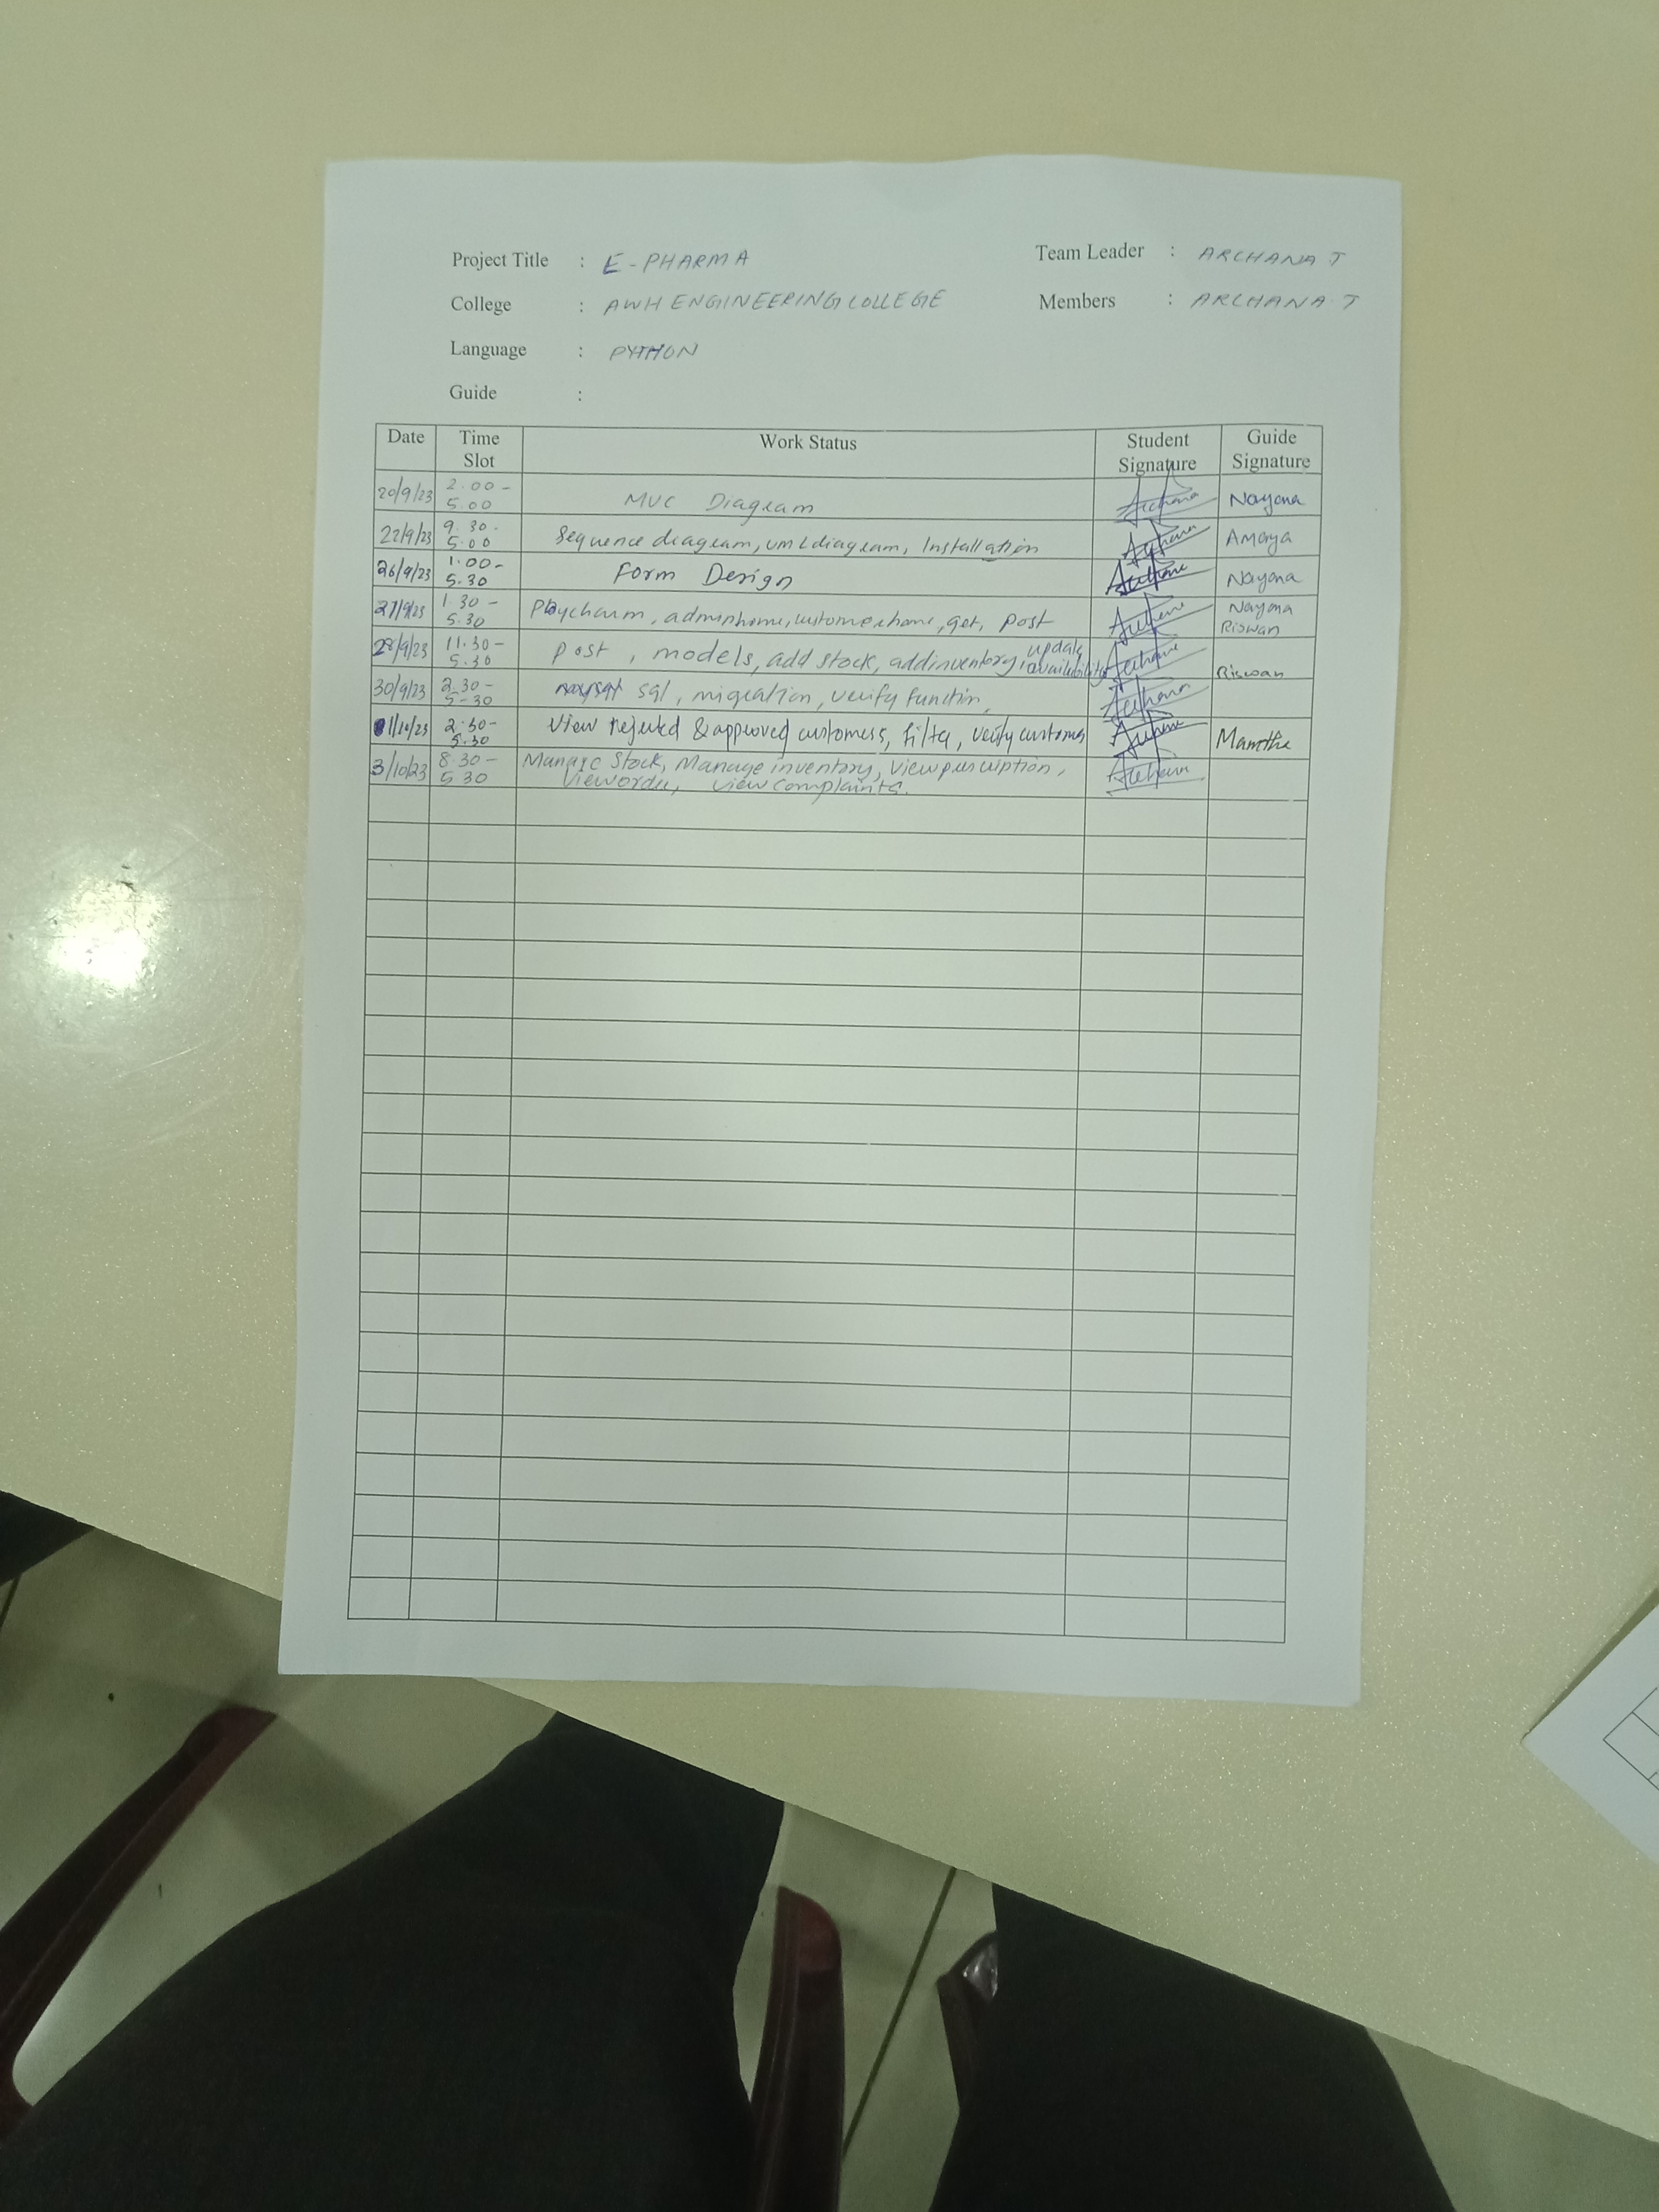 Project Title : E-PHARMA Team Leader : ARCHANA T
College : AWH ENGINEERING COLLEGE Members : ARCHANA T
Language : PYTHON
Guide :
Date Time Slot Work Status Student Signature Guide Signature
20/9/23 2.00 - 5.00 MVC Diagram Archana Nayona
22/9/23 9.30 - 5.00 Sequence diagram, UML diagram, Installation Archana Amaya
26/9/23 1.00 - 5.30 Form Design Archana Nayona
27/9/23 1.30 - 5.30 Pycharm, adminhome, customerhome, get, post Archana Nayona Riswan
28/9/23 11.30 - 5.30 post, models, add stock, addinventory, update availability Archana Riswan
30/9/23 2.30 - 5.30 sql, migration, verify functin, Archana
1/10/23 2.30 - 5.30 View rejected & approved customers, filter, verify customer Archana Mamtha
3/10/23 8.30 - 5.30 Manage Stock, Manage inventory, View prescription, Archana
View order, view complaints.